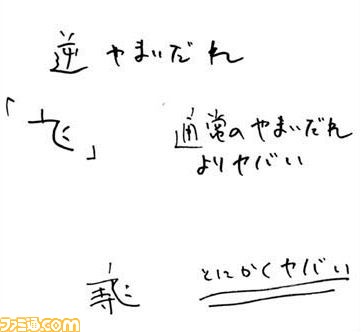 逆 やまいだれ
「 」
通常のやまいだれ
よりヤバい
とにかくヤバい
ファミ通.com